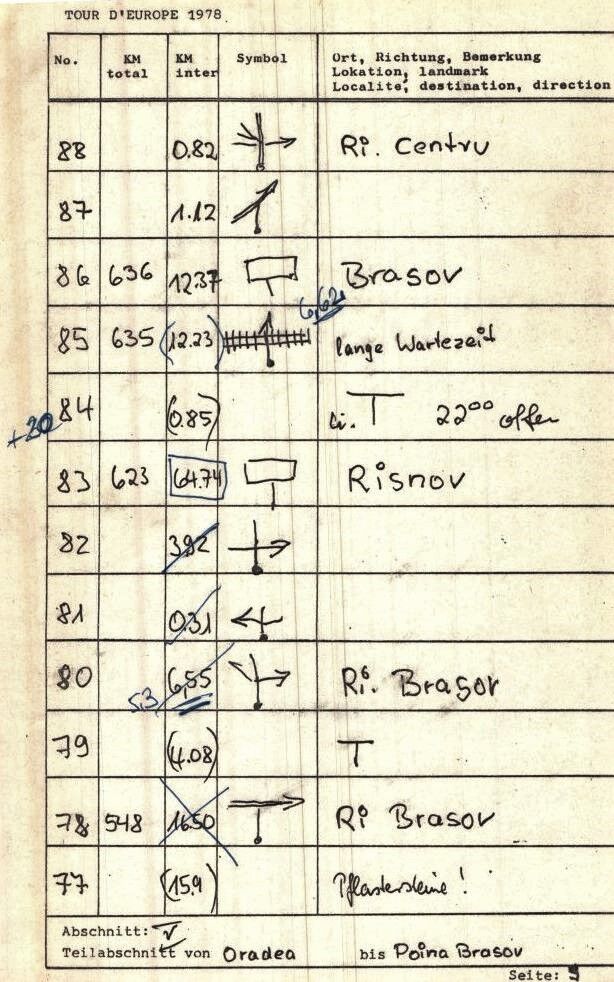 TOUR D'EUROPE 1978
No. KM total KM inter Symbol Ort, Richtung, Bemerkung
Lokation, landmark
Localite, destination, direction
88 0.82 Ri. Centru
87 1.12
86 636 12.37 Brasov
6,62
85 635 (12.23) lange Wartezeit
84 (0.85) li. T 22⁰⁰ offen
+20
83 623 64.74 Risnov
82 3.92
81 0.31
80 6,55 Ri. Brasov
5,3
79 (4.08) T
78 548 16.50 Ri Brasov
77 (15.9) Pflastersteine!
Abschnitt: V
Teilabschnitt von Oradea bis Poina Brasov
Seite: